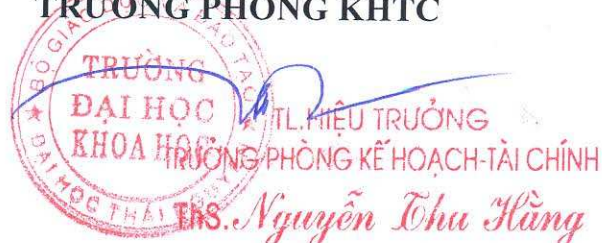 TRƯỞNG PHÒNG KHTC
BỘ GIÁO DỤC VÀ ĐÀO TẠO
TRƯỜNG
ĐẠI HỌC
KHOA HỌC
ĐẠI HỌC THÁI
TL.HIỆU TRƯỞNG
TRƯỞNG PHÒNG KẾ HOẠCH-TÀI CHÍNH
ThS. Nguyễn Thu Hằng